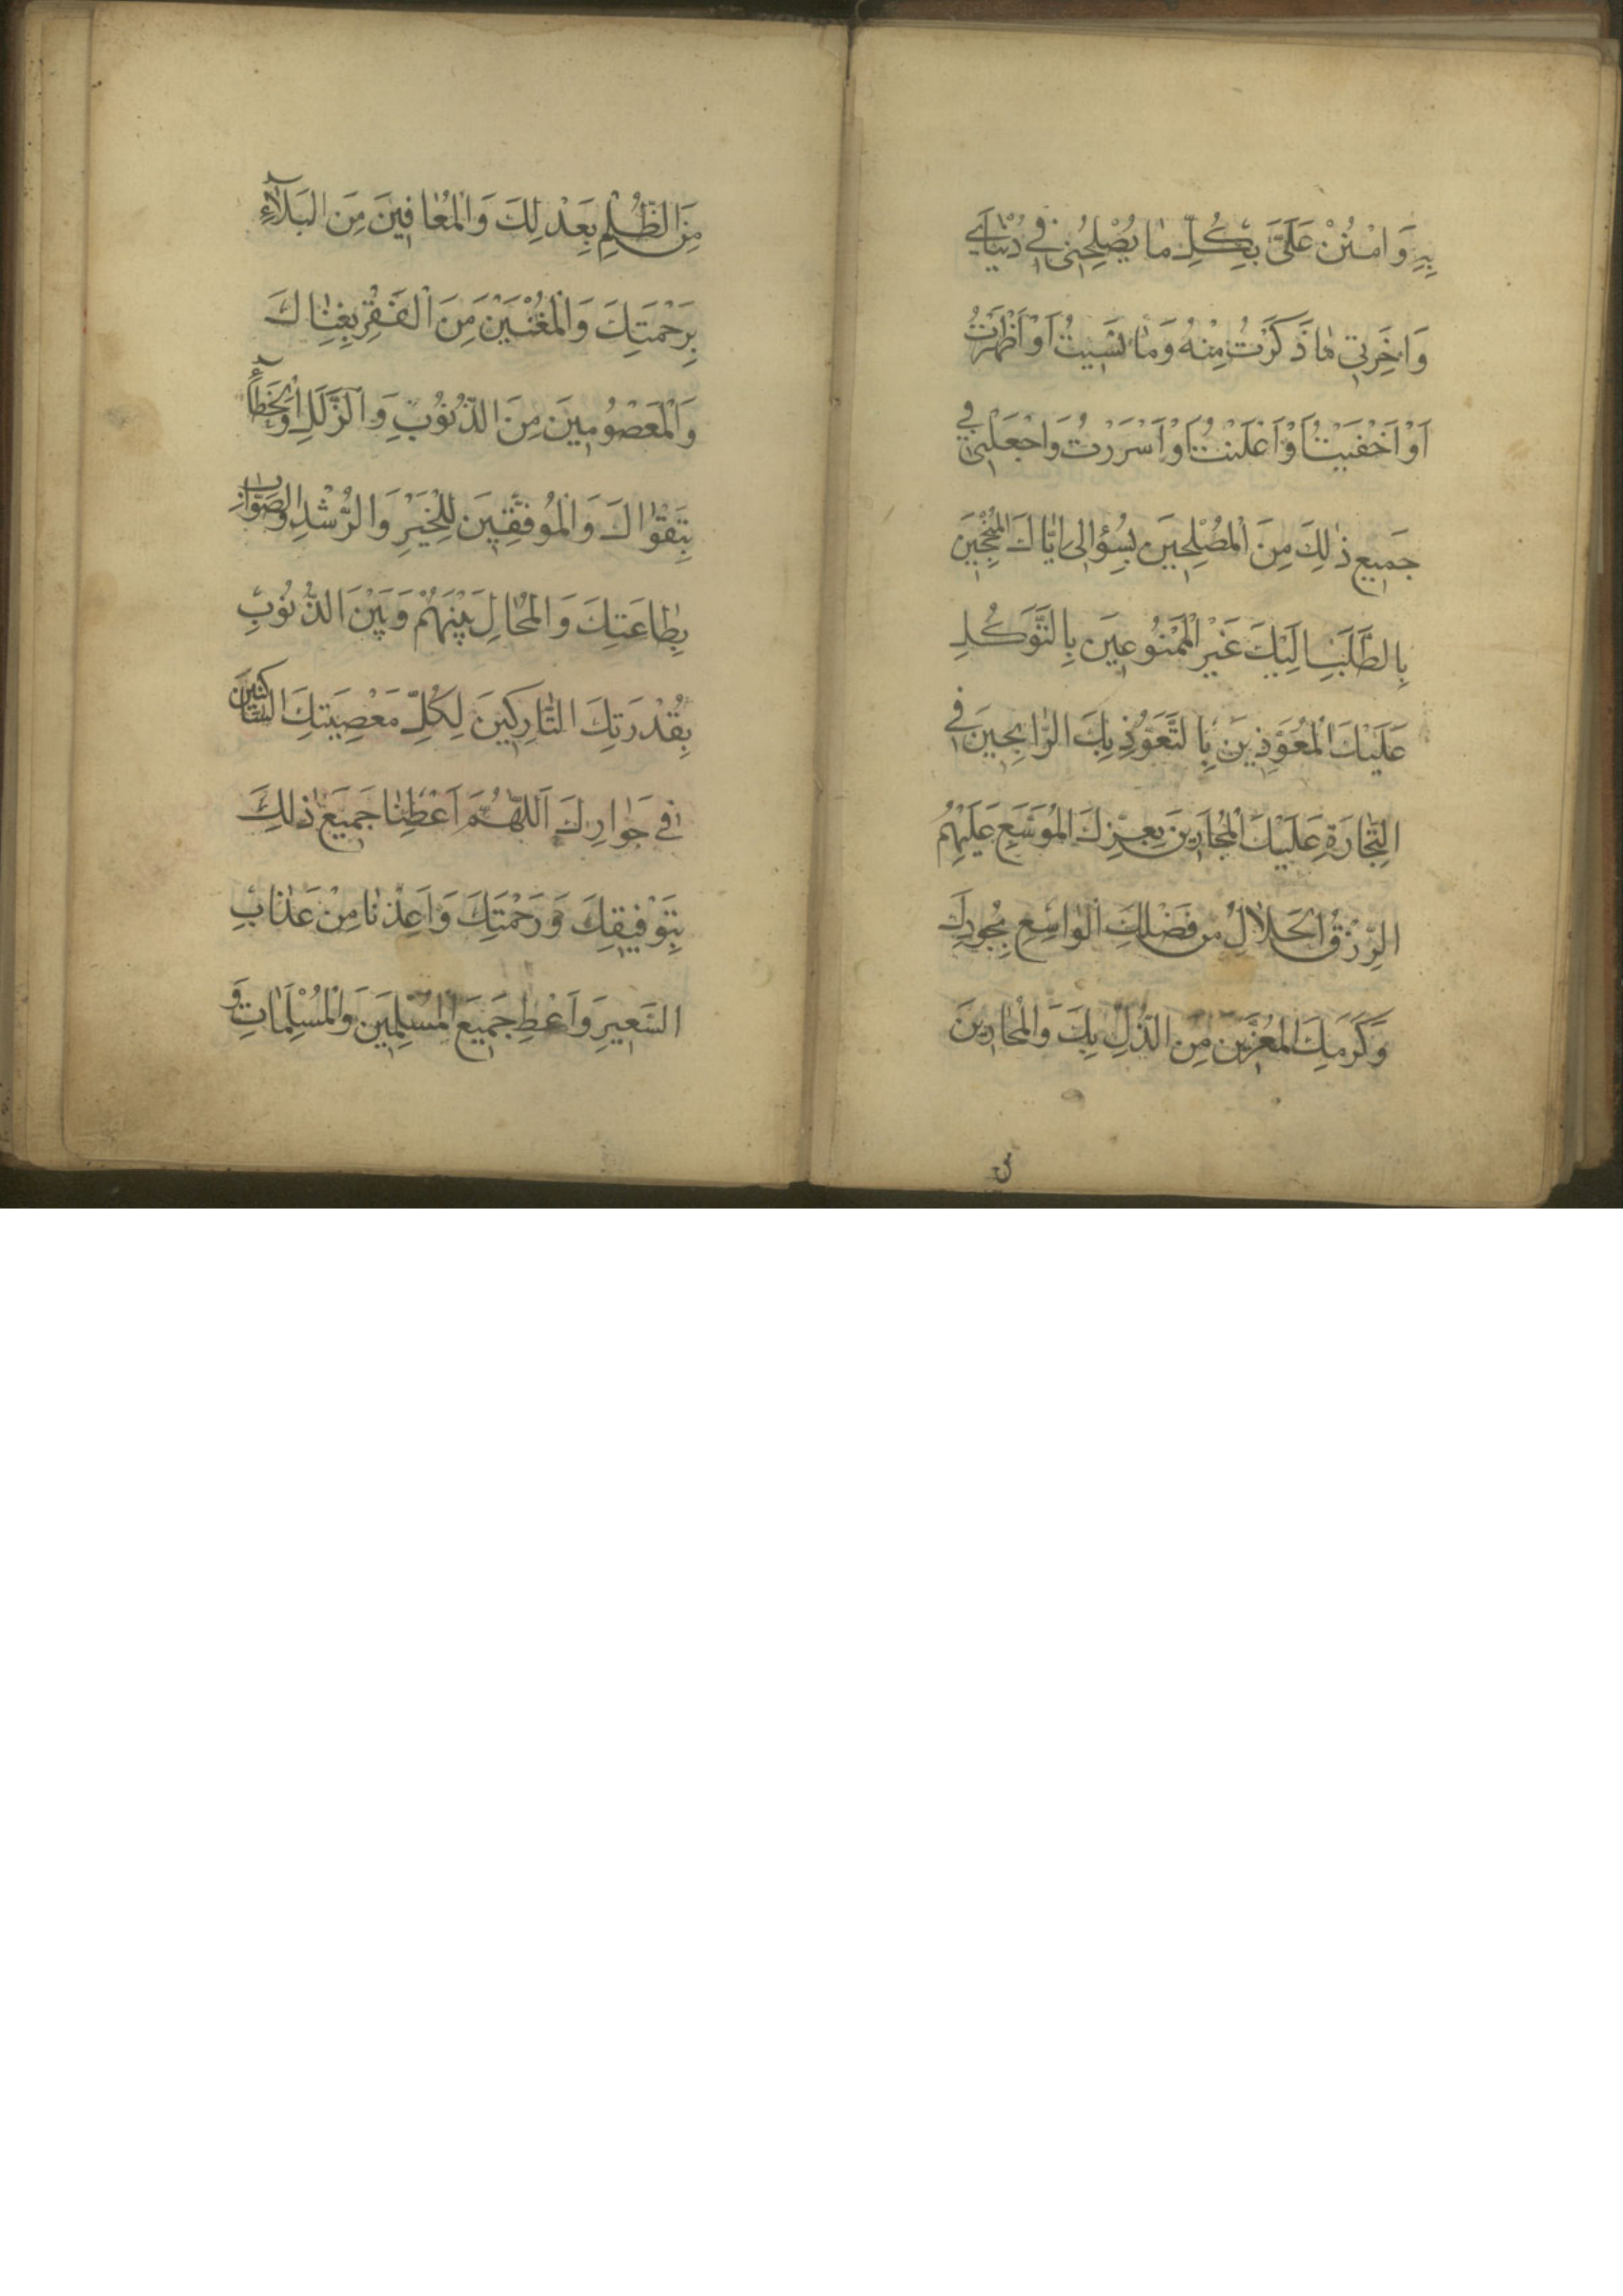 بِهِ وَامْنُنْ عَلَيَّ بِكُلِّ مَا يُصْلِحُنِي فِي دُنْيَايَ
وَاخِرَتِي مَا ذَكَرْتُ مِنْهُ وَمَا نَسِيتُ اَوْ اَظْهَرْتُ
اَوْ اَخْفَيْتُ اَوْ اَعْلَنْتُ اَوْ اَسْرَرْتُ وَاجْعَلْنِي فِي
جَمِيعِ ذٰلِكَ مِنَ الْمُصْلِحِينَ بِسُؤَالِي اِيَّاكَ الْمُنْجِحِينَ
بِالطَّلَبِ اِلَيْكَ غَيْرِ الْمَمْنُوعِينَ بِالتَّوَكُّلِ
عَلَيْكَ الْمُعَوَّذِينَ بِالتَّعَوُّذِ بِكَ الرَّابِحِينَ فِي
التِّجَارَةِ عَلَيْكَ الْمُجَارِينَ بِعِزِّكَ الْمُوَسَّعِ عَلَيْهِمُ
الرِّزْقُ الْحَلَالُ مِنْ فَضْلِكَ الْوَاسِعِ بِجُودِكَ
وَكَرَمِكَ الْمُعَزِّينَ مِنَ الذُّلِّ بِكَ وَالْمُجَارِينَ
مِنَ
مِنَ الظُّلْمِ بِعَدْلِكَ وَالْمُعَافِينَ مِنَ الْبَلَآءِ
بِرَحْمَتِكَ وَالْمُغْنَيْنَ مِنَ الْفَقْرِ بِغِنَاكَ
وَالْمَعْصُومِينَ مِنَ الذُّنُوبِ وَالزَّلَلِ وَالْخَطَآءِ
بِتَقْوَاكَ وَالْمُوَفَّقِينَ لِلْخَيْرِ وَالرُّشْدِ وَالصَّوَابِ
بِطَاعَتِكَ وَالْمُحَالِ بَيْنَهُمْ وَبَيْنَ الذُّنُوبِ
بِقُدْرَتِكَ التَّارِكِينَ لِكُلِّ مَعْصِيَتِكَ السَّاكِنِينَ
فِي جِوَارِكَ اَللّٰهُمَّ اَعْطِنَا جَمِيعَ ذٰلِكَ
بِتَوْفِيقِكَ وَرَحْمَتِكَ وَاَعِذْنَا مِنْ عَذَابِ
السَّعِيرِ وَاَعْطِ جَمِيعَ الْمُسْلِمِينَ وَالْمُسْلِمَاتِ وَ